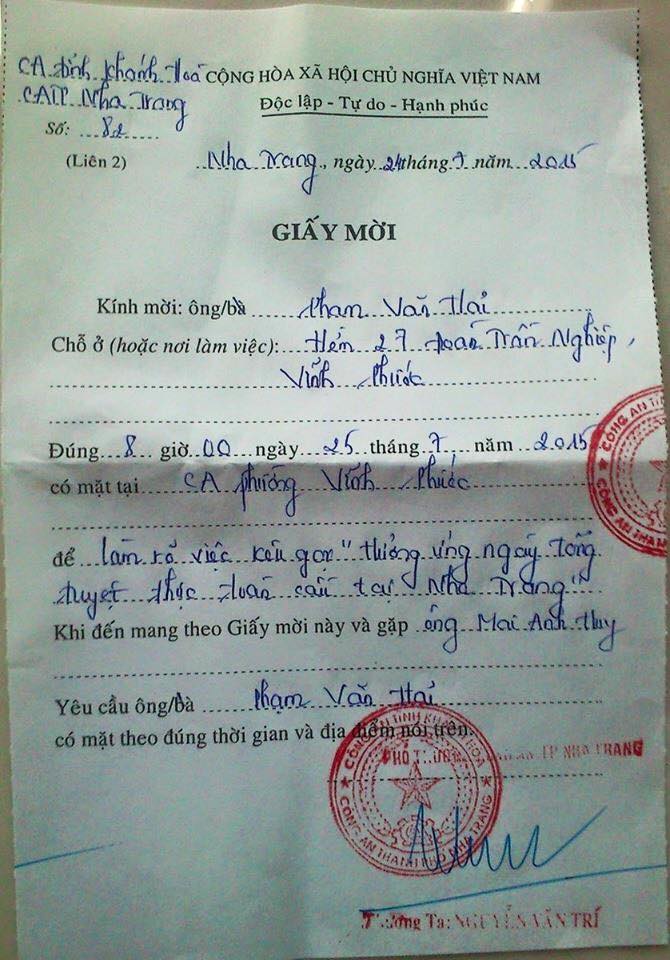 CA tỉnh Khánh Hoà CỘNG HÒA XÃ HỘI CHỦ NGHĨA VIỆT NAM
CATP Nha Trang Độc lập - Tự do - Hạnh phúc
Số: 82
(Liên 2) Nha Trang, ngày 24 tháng 7 năm 2015
GIẤY MỜI
Kính mời: ông/bà Phạm Văn Hải
Chỗ ở (hoặc nơi làm việc): Hẻm 27 Đoàn Trần Nghiệp,
Vĩnh Phước
Đúng 8 giờ 00 ngày 25 tháng 7, năm 2015
có mặt tại CA phường Vĩnh Phước
để làm rõ việc kêu gọi "Hưởng ứng ngày tổng
tuyệt thực toàn cầu tại Nha Trang"
Khi đến mang theo Giấy mời này và gặp ông Mai Anh Huy
Yêu cầu ông/bà Phạm Văn Hải
có mặt theo đúng thời gian và địa điểm nói trên.
CÔNG AN TỈNH KHÁNH HÒA
CÔNG AN THÀNH PHỐ NHA TRANG
PHÓ TRƯỞNG CÔNG AN TP NHA TRANG
Thượng Tá: NGUYỄN VĂN TRÍ